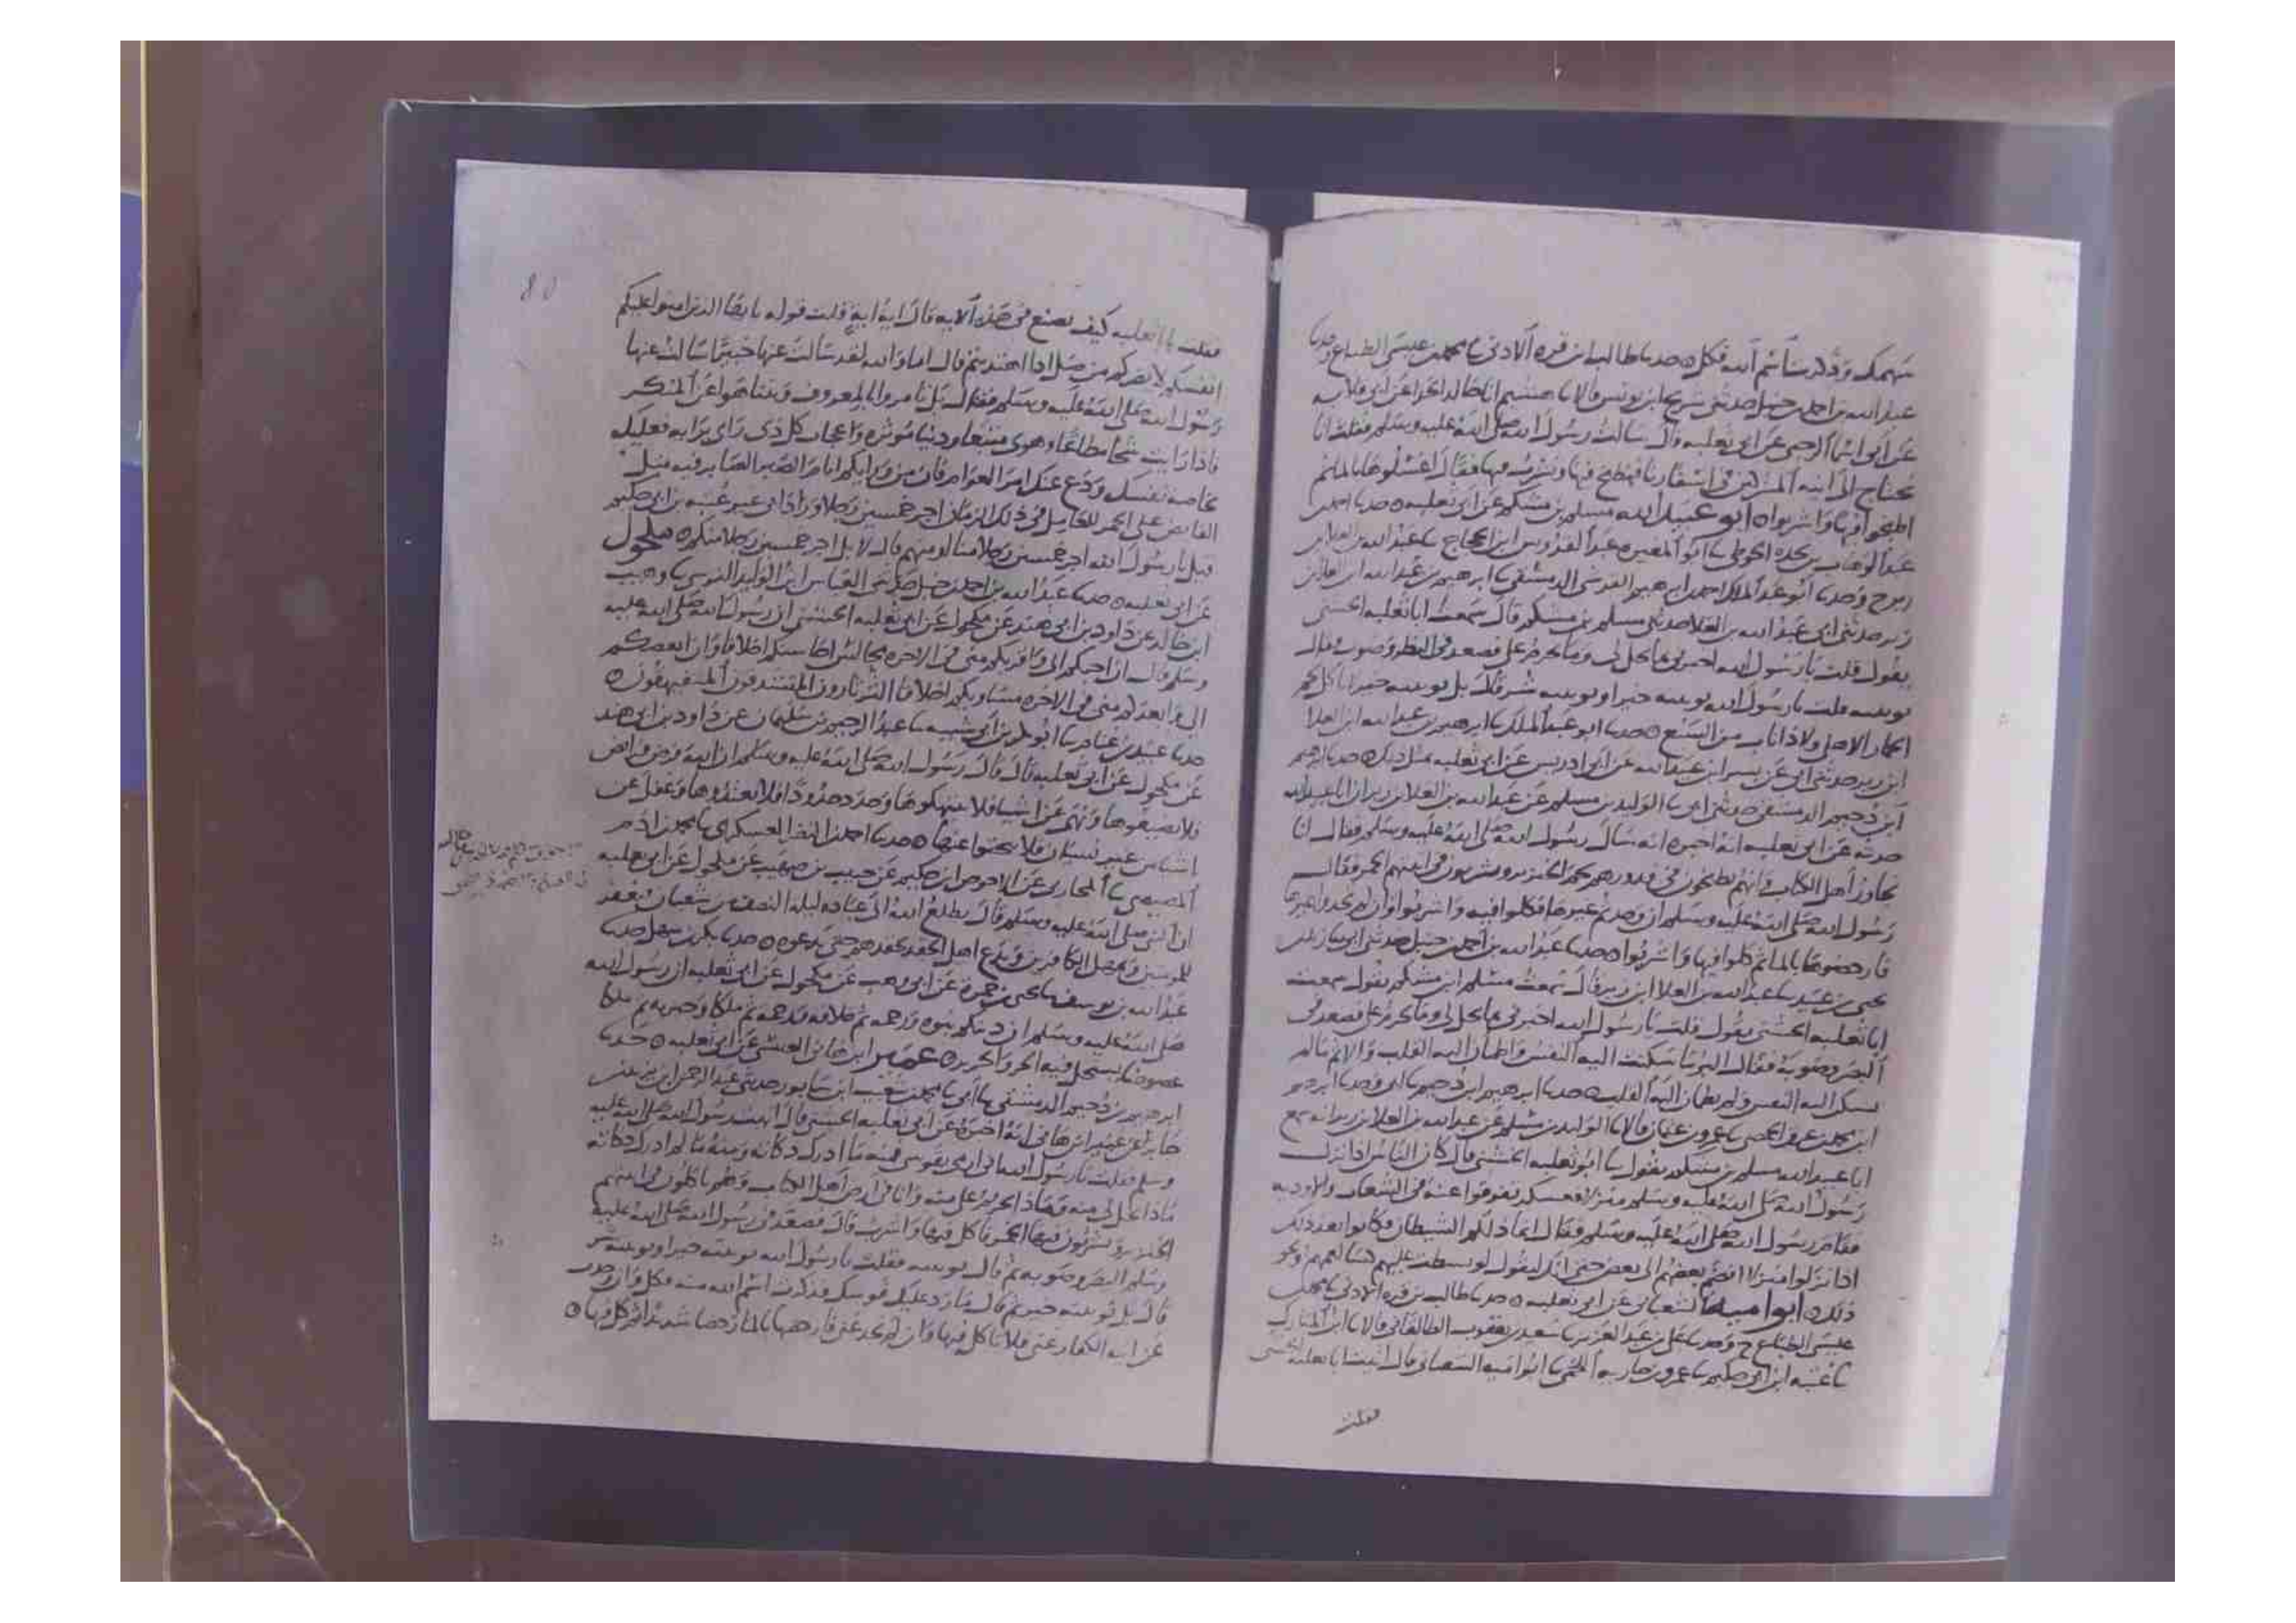 سهمك وذكرت اسم الله فكل ٥ حدثنا طالب ابن قرة الادني ثنا محمد بن عيسى الطباع وحدثنا
عبد الله بن احمد بن حنبل حدثني سريج ابن يونس قالا ثنا هشيم انا خالد الحذا عن ابي قلابه
عن ابي اسما الرحبي عن ابي ثعلبه قال سالت رسول الله صلى الله عليه وسلم فقلت انا
نحتاج الى انيه المشركين في اسفارنا فنطبخ فيها ونشرب فيها فقال اغسلوها بالماء ثم
اطبخوا فيها واشربوا ٥ ابو عبيد الله مسلم بن مشكم عن ابي ثعلبه ٥ حدثنا احمد بن
عبد الوهاب بن نجده الحوطي ثنا ابو المغيره عبد القدوس ابن الحجاج ثنا عبد الله بن العلا بن
زبر ح وحدثنا ابو عبد الملك احمد بن ابرهيم القرشي الدمشقي ثنا ابرهيم بن عبد الله ابن العلا بن
زبر حدثني ابي عبد الله بن العلا حدثني مسلم بن مشكم قال سمعت ابا ثعلبه الخشني
يقول قلت يا رسول الله اخبرني بما يحل لي وما يحرم علي فصعد في النظر وصوب فقال
نويبته قلت يا رسول الله نويبته خير او نويبته شر قال بل نويبته خير لا تاكل لحم
الحمار الاهلي ولا ذا ناب من السبع ٥ حدثنا ابو عبد الملك ثنا ابرهيم بن عبد الله ابن العلا
ابن زبر حدثني ابي عن بسر ابن عبيد الله عن ابي ادريس عن ابي ثعلبه مثل ذلك ٥ حدثنا ابرهيم
ابن دحيم الدمشقي حدثني ابي ثنا الوليد بن مسلم عن عبد الله بن العلا بن زبر ان ابا عبيد الله
حدثه عن ابي ثعلبه انه اخبره انه سال رسول الله صلى الله عليه وسلم فقال انا
نجاور اهل الكتاب وانهم يطبخون في قدورهم لحم الخنزير ويشربون في انيتهم الخمر فقال
رسول الله صلى الله عليه وسلم ان وجدتم غيرها فكلوا فيه واشربوا وان لم تجدوا غيرها
فارحضوها بالماء ثم كلوا فيها واشربوا ٥ حدثنا عبد الله بن احمد بن حنبل حدثني ابي ثنا زيد بن
يحيى بن عبيد ثنا عبد الله بن العلا ابن زبر قال سمعت مسلم ابن مشكم يقول سمعت
ابا ثعلبه الخشني يقول قلت يا رسول الله اخبرني بما يحل لي وما يحرم علي فصعد في
البصر وصوبه فقال البر ما سكنت اليه النفس واطمان اليه القلب والاثم ما لم
تسكن اليه النفس ولم يطمان اليه القلب ٥ حدثنا ابرهيم ابن دحيم ثنا ابي وحدثنا ابرهيم
ابن محمد بن عرق الحمصي ثنا عمرو بن عثمان قالا ثنا الوليد بن مسلم عن عبد الله بن العلا بن زبر انه سمع
ابا عبيد الله مسلم بن مشكم يقول ثنا ابو ثعلبه الخشني قال كان الناس اذا نزل
رسول الله صلى الله عليه وسلم منزلا فعسكر تفرقوا عنه في الشعاب والاوديه
فقام رسول الله صلى الله عليه وسلم فقال انما ذلكم الشيطان فكانوا بعد ذلك
اذا نزلوا منزلا انضم بعضهم الى بعض حتى انك لتقول لو بسطت عليهم كسا لعمهم ونحو
ذلك ٥ ابو اميه الشعباني عن ابي ثعلبه ٥ حدثنا طالب بن قرة الادني ثنا محمد بن
عيسى الطباع ح وحدثنا علي بن عبد العزيز ثنا سعيد بن يعقوب الطالقاني قالا ثنا ابن المبارك
ثنا عتبه ابن ابي حكيم ثنا عمرو بن جاريه اللخمي ثنا ابو اميه الشعباني قال اتيت ابا ثعلبه الخشني
فقلت
80
فقلت يا ابا ثعلبه كيف تصنع في هذه الايه قال اية ايه قلت قوله يا ايها الذين امنوا عليكم
انفسكم لا يضركم من ضل اذا اهتديتم قال اما والله لقد سالت عنها خبيرا سالت عنها
رسول الله صلى الله عليه وسلم فقال بل تامروا بالمعروف وتناهوا عن المنكر
فاذا رايت شحا مطاعا وهوى متبعا ودنيا موثره واعجاب كل ذي راي برايه فعليك
بخاصه نفسك ودع عنك امر العوام فان من ورايكم ايام الصبر الصابر فيه مثل
القابض على الجمر للعامل في ذلك الزمان اجر خمسين رجلا وزادني غير عتبه بن ابي حكيم
قيل يا رسول الله اجر خمسين رجلا منا او منهم قال لا بل اجر خمسين رجلا منكم ٥ مكحول
عن ابي ثعلبه ٥ حدثنا عبد الله بن احمد بن حنبل حدثني العباس ابن الوليد النرسي ثنا وهيب
ابن خالد عن داود بن ابي هند عن مكحول عن ابي ثعلبه الخشني ان رسول الله صلى الله عليه
وسلم قال ان احبكم الي واقربكم مني في الاخره مجالس احاسنكم اخلاقا وان ابغضكم
الي وابعدكم مني في الاخره مساويكم اخلاقا الثرثارون المتشدقون المتفيهقون ٥
حدثنا عبيد بن غنام ثنا ابو بكر بن ابي شيبه ثنا عبد الرحيم بن سليمان عن داود بن ابي هند
عن مكحول عن ابي ثعلبه قال قال رسول الله صلى الله عليه وسلم ان الله فرض فرائض
فلا تضيعوها ونهى عن اشيا فلا تنتهكوها وحد حدودا فلا تعتدوها وغفل عن
اشيا من غير نسيان فلا تبحثوا عنها ٥ حدثنا احمد بن النضر العسكري ثنا محمد بن ادم
المصيصي ثنا المحاربي عن الاحوص ابن حكيم عن حبيب بن صهيب عن مكحول عن ابي ثعلبه
ان النبي صلى الله عليه وسلم قال يطلع الله الى عباده ليله النصف من شعبان فيغفر
للمومنين ويمهل الكافرين ويدع اهل الحقد بحقدهم حتى يدعوه ٥ حدثنا بكر بن سهل حدثنا
عبد الله بن يوسف ثنا يحيى بن حمزة عن ابي وهب عن مكحول عن ابي ثعلبه ان رسول الله
صلى الله عليه وسلم ان دينكم نبوه ورحمه ثم خلافه ورحمه ثم ملكا وجبريه ثم ملكا
عضوضا يستحل فيه الحر والحرير ٥ عمير ابن هاني العنسي عن ابي ثعلبه ٥ حدثنا
ابرهيم بن دحيم الدمشقي ثنا ابي ثنا محمد بن شعيب ابن شابور حدثني عبد الرحمن ابن يزيد بن
جابر عن عمير ابن هاني انه اخبره عن ابي ثعلبه الخشني قال اتيت رسول الله صلى الله عليه
وسلم فقلت يا رسول الله اني ارمي بقوسي فمنه ما ادرك ذكاته ومنه ما لم ادرك ذكاته
فماذا يحل لي منه وماذا يحرم علي منه وانا في ارض اهل الكتاب وهم ياكلون في انيتهم
الخنزير ويشربون فيها الخمر فاكل فيها واشرب قال فصعد في رسول الله صلى الله عليه
وسلم البصر وصوبه ثم قال نويبته فقلت يا رسول الله نويبته خير او نويبته شر
قال بل نويبته خير ثم قال ما رد عليك قوسك فذكرت اسم الله منه فكل وان وجدت
عن انيه الكفار غنى فلا تاكل فيها وان لم تجد غنى فارحضها بالماء رحضا شديدا ثم كل فيها ٥